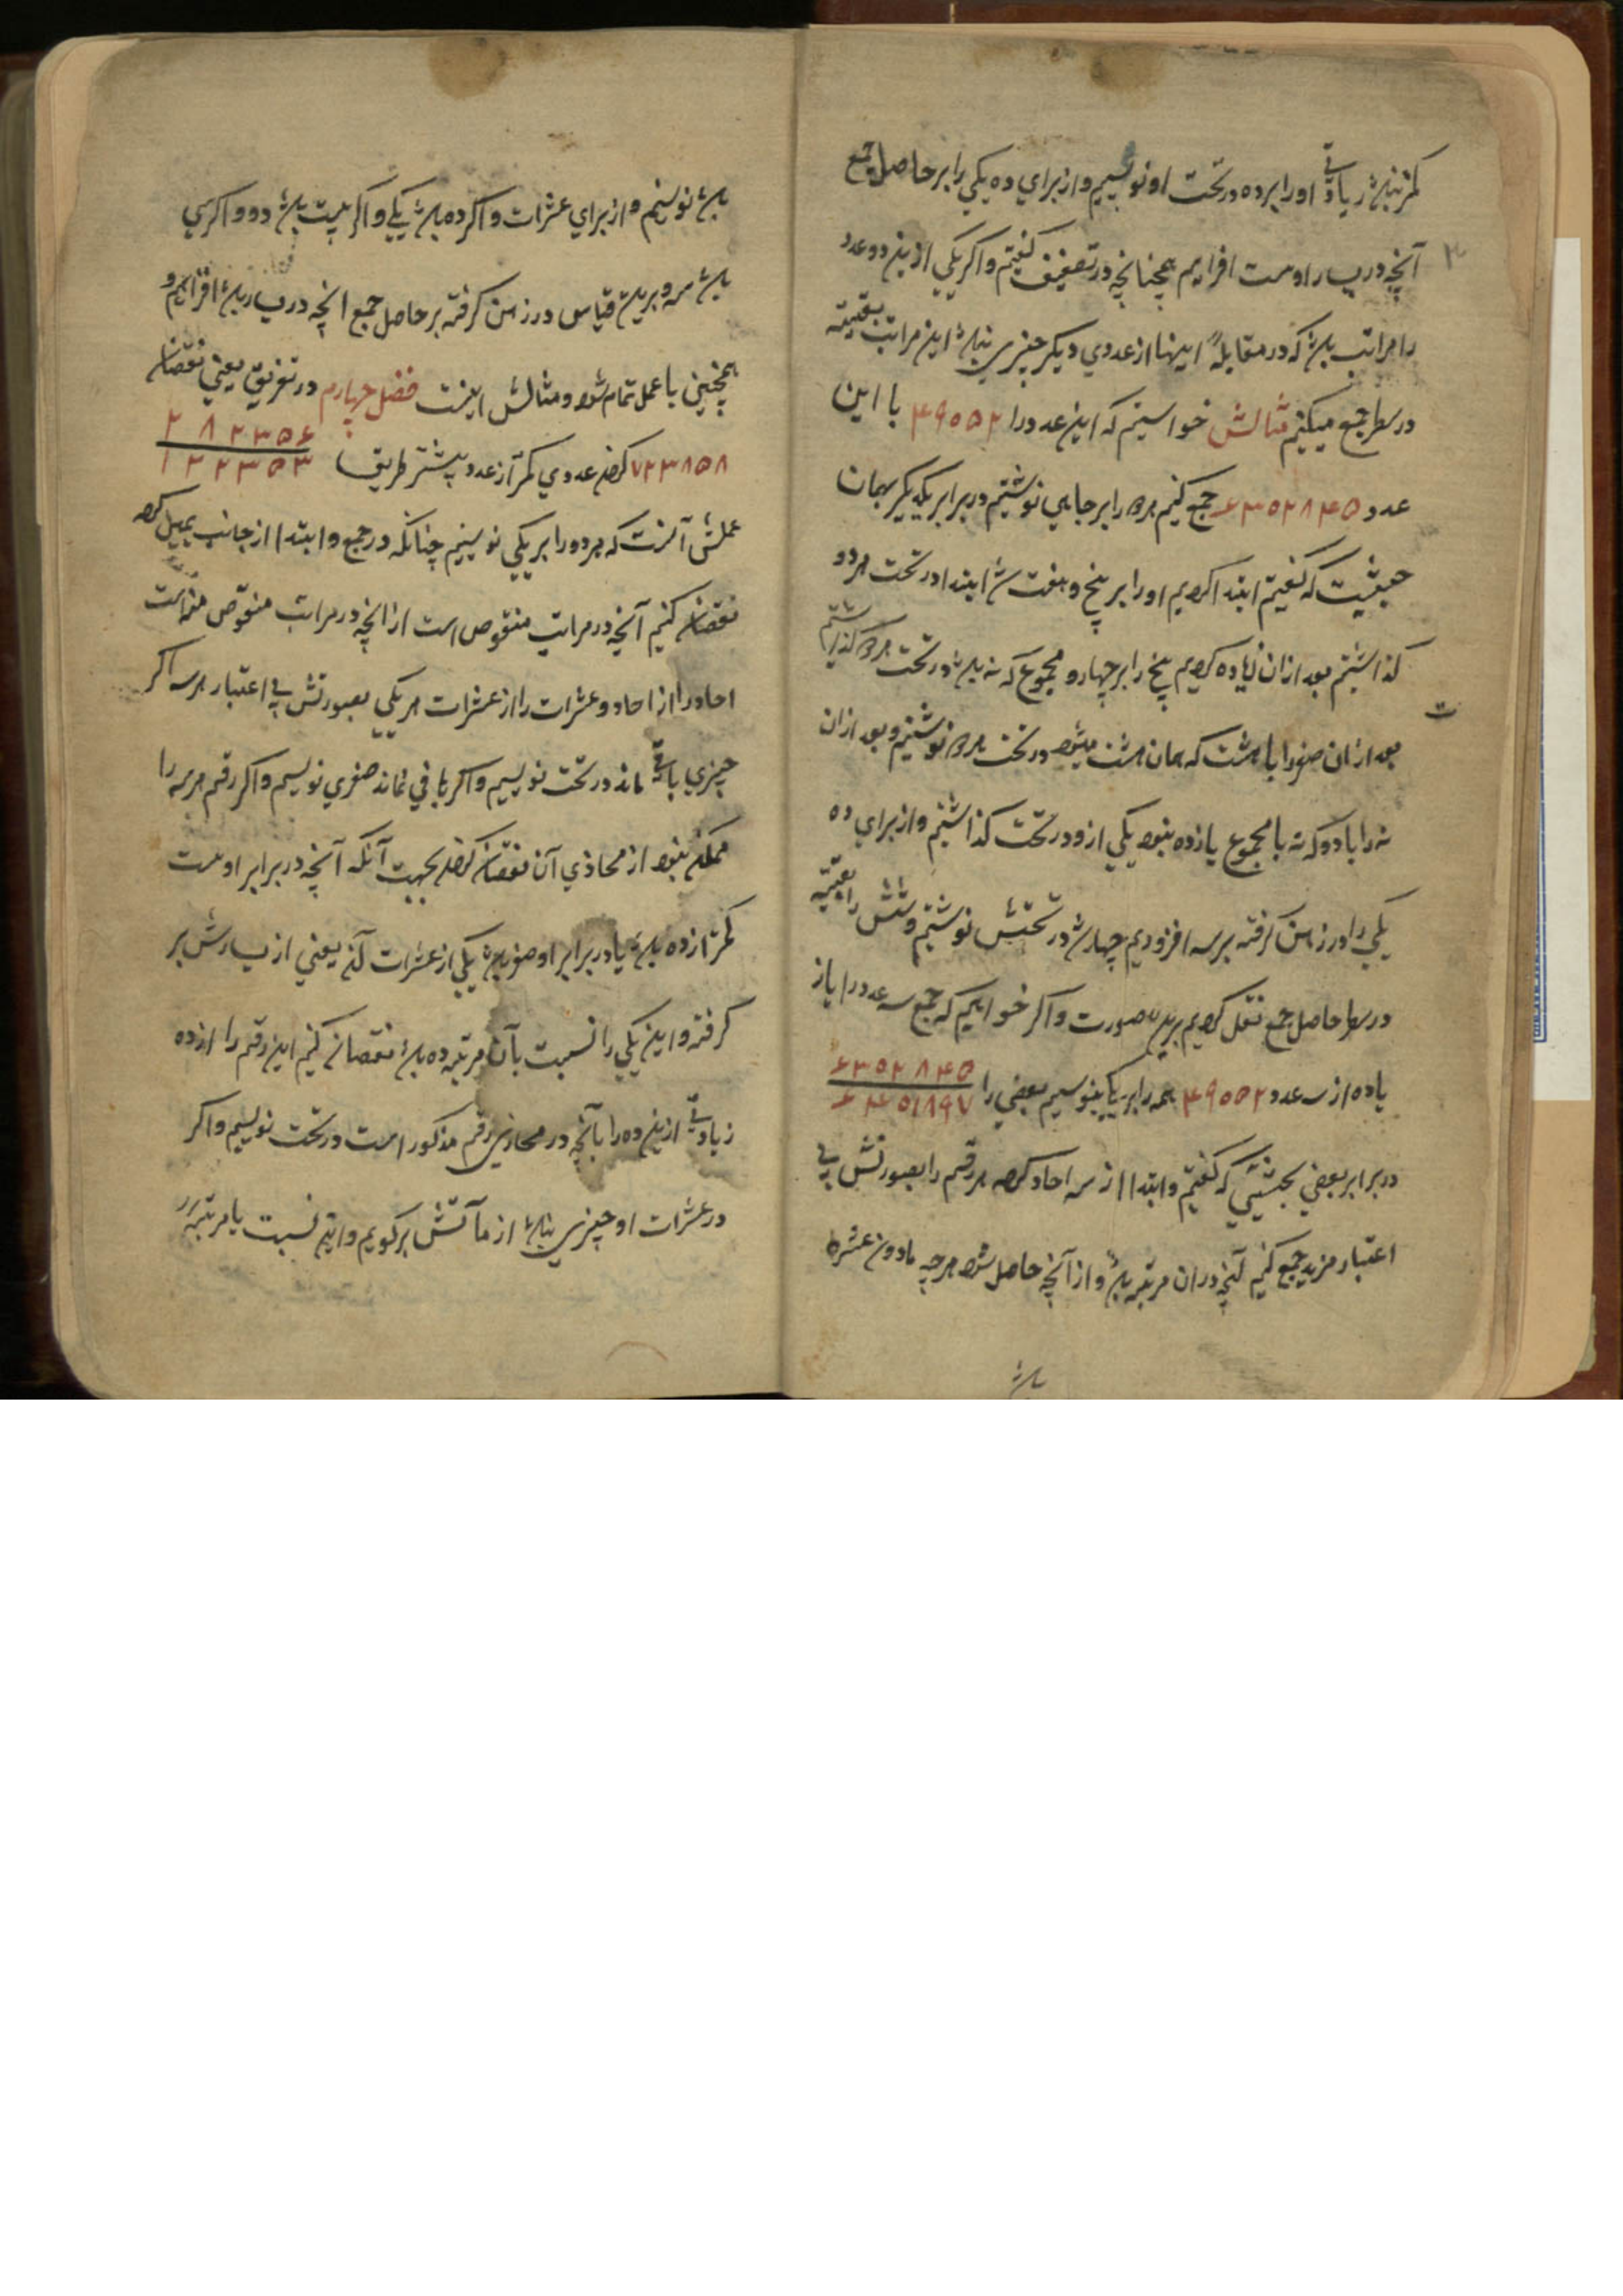 کمتر نباشد زیادتی او را بر ده در تحت او نویسیم و از برای ده یکی را بر حاصل جمع
آنچه در یسار اوست افزاییم همچنانچه در تضعیف گفتیم و اگر یکی ازین دو عدد
را مراتب باشد که در مقابلهٔ اینها از عددی دیگر چیزی نباشد این مراتب بقیته
در سطر جمع میکنیم مثالش خواستیم که این عدد را ۴۹۰۵۲ با این
عدد ۶۳۵۲۸۴۵ جمع کنیم هر دو را بر جایی نوشتیم در برابر یکدیگر بهمان
حیثیت که گفتیم ابتدا کردیم او را بر پنج و هفت شد ابتدا در تحت هر دو
گذاشتیم بعد ازان زیاده کردیم پنج را بر چهار و مجموع که نه باشد در تحت هر دو گذاشتیم
بعد ازان صفر را با هشت که همان هشت میشود در تحت هر دو نوشتیم و بعد ازان
نه را با دو که تا مجموع یازده بنود یکی ازو در تحت گذاشتیم و از برای ده
یکی را در ذهن گرفته بر سه افزودیم چهار شد در تحتش نوشتیم و شش را بعینه
در سطر حاصل جمع نقل کردیم برین صورت و اگر خواهیم که جمع سه عدد را یا ز
۶۳۵۲۸۴۵
یاده از سه عدد ۴۹۰۵۲ همه را بر یکجا بنویسیم بعضی را ۶۴۰۱۸۹۷
در برابر بعضی بحیثیتی که گفتیم و ابتدا از سه احاد کرده هر رقم را بصورتش بی
اعتبار مزید جمع کنیم آنچه دران مرتبه باشد و از آنچه حاصل شود هر چه مادون عشره
باشد
باشد نویسیم و از برای عشرات و اگر ده باشد یکی و اگر بیست باشد دو و اگر سی
باشد سه و برین قیاس در ذهن گرفته بر حاصل جمع انچه در یسار باشد افزاییم و
همچنین تا عمل تمام شود و مثالش اینست فصل چهارم در تفریق یعنی نقصان
۲۸۲۳۵۶
۷۲۳۸۵۸ کردن عددی کمتر از عدد بیشتر طریق ۱۲۲۳۵۳
عملش آنست که هر دو را بر یکی نویسیم چنانکه در جمع و ابتدا از جانب یمین کرده
نقصان کنیم آنچه در مراتب منقوص است از انچه در مراتب منقوص منه است
احاد را از احاد و عشرات را از عشرات هر یکی بصورتش بی اعتبار مرتبه اگر
چیزی باقی ماند در تحت نویسیم و اگر باقی نماند صفری نویسیم و اگر رقم مرتبه را
ممکن نبود از محاذی آن نقصان کردن بجهت آنکه آنچه در برابر اوست
کمتر از ده باشد یا در برابر او صفر باشد یکی از عشرات آن یعنی از یسارش بر
گرفته و این یکی را نسبت بآن مرتبه ده باشد نقصان کنیم این رقم را از ده
زیادتی ازین ده را بآنچه در محاذی رقم مذکور است در تحت نویسیم و اگر
در عشرات او چیزی نباشد از مآتش بر گویم و این نسبت با مرتبه